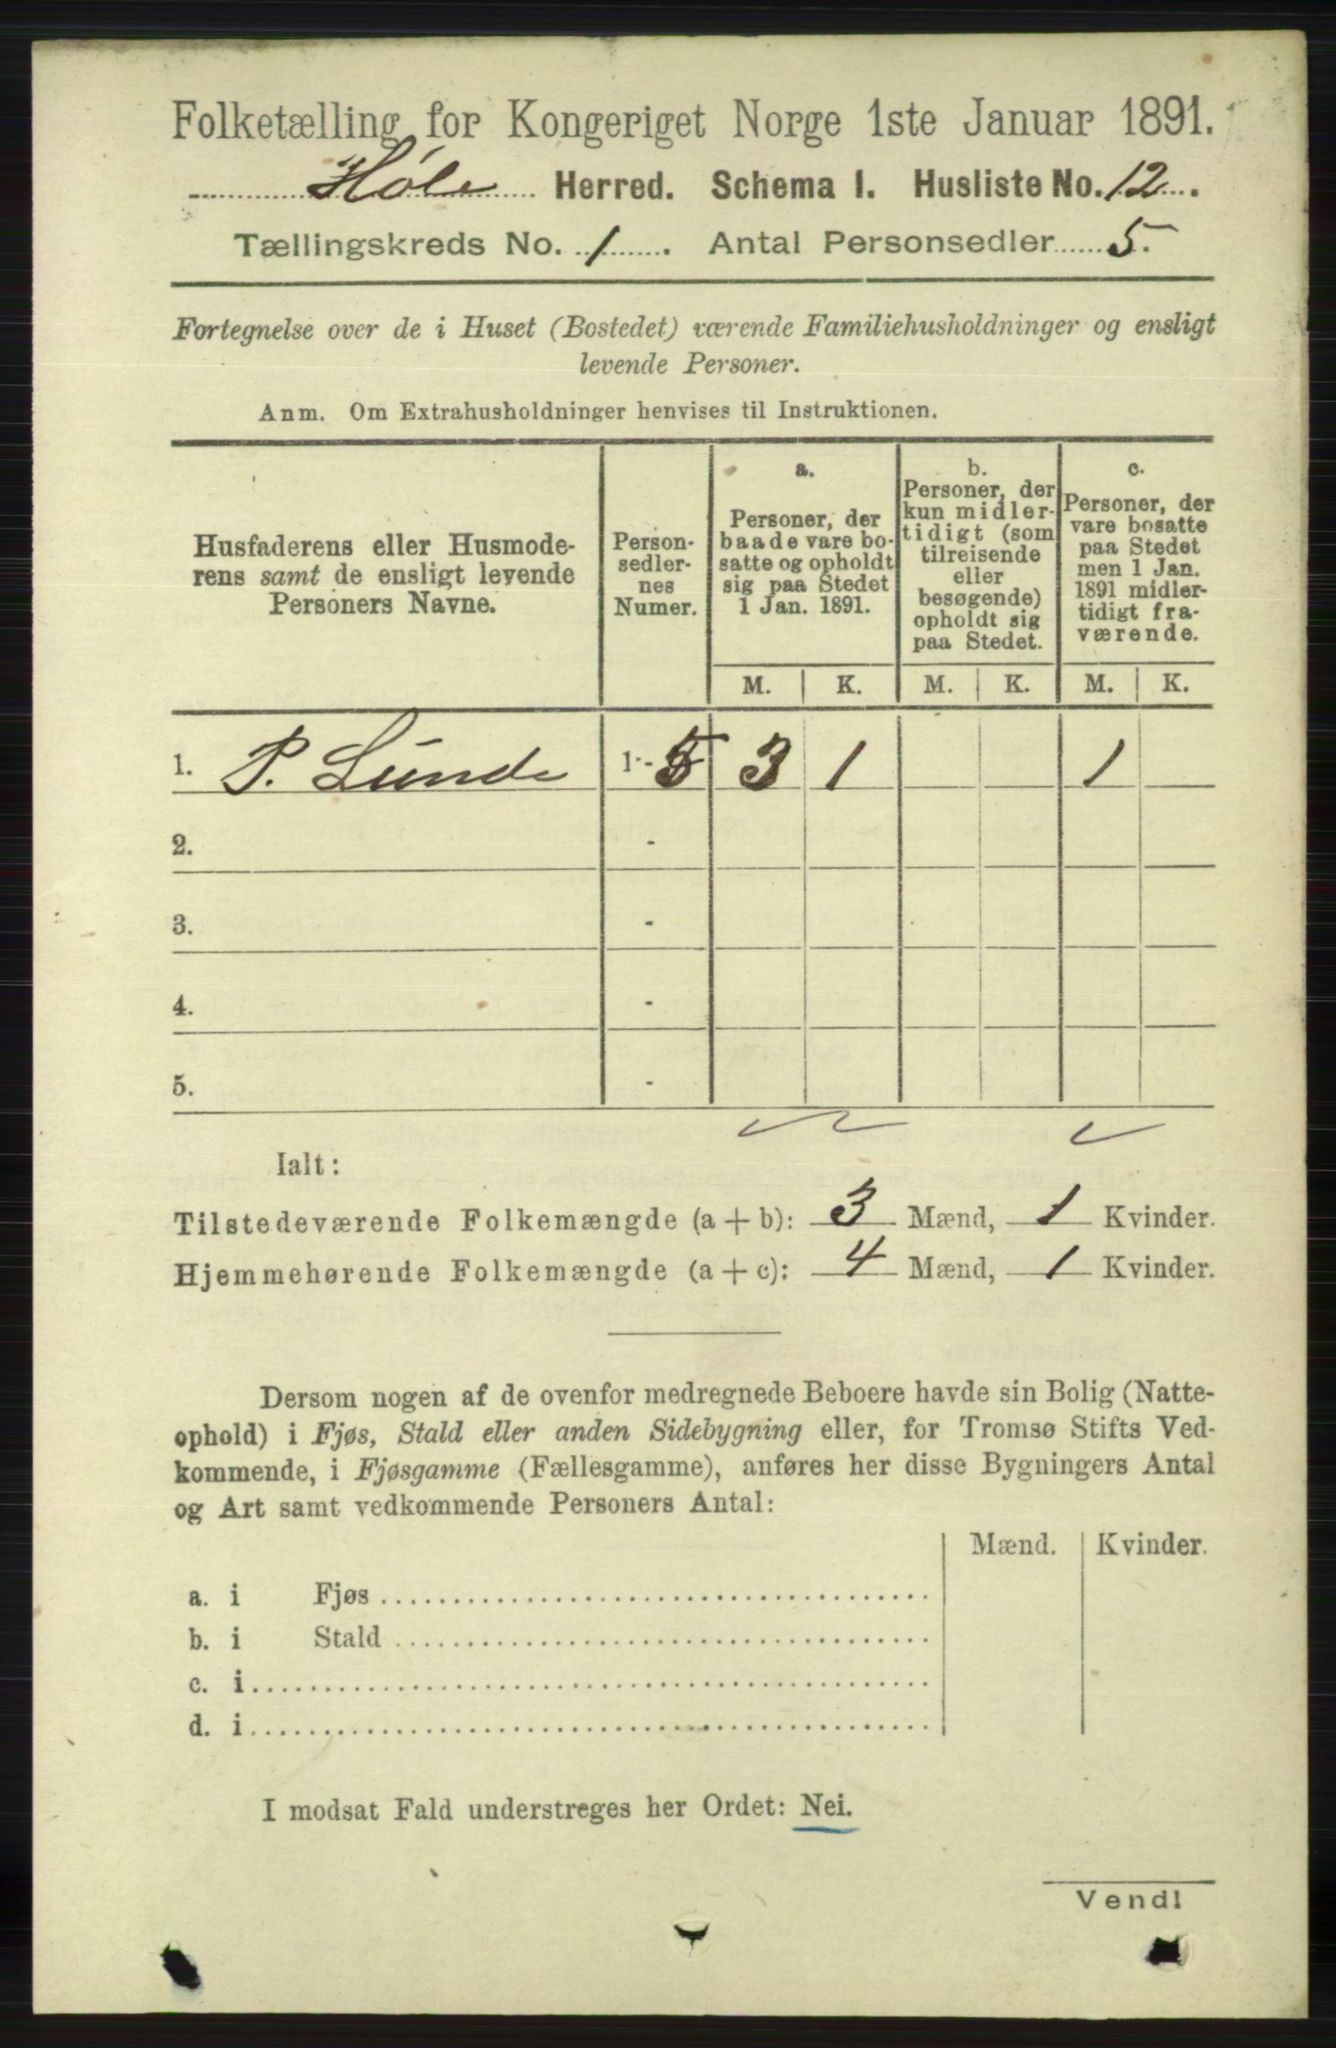 Folketælling for Kongeriget Norge 1ste Januar 1891.
Høle Herred. Schema I. Husliste No. 12.
Tællingskreds No. 1. Antal Personsedler 5.
Fortegnelse over de i Huset (Bostedet) værende Familiehusholdninger og ensligt
levende Personer.
Anm. Om Extrahusholdninger henvises til Instruktionen.
Husfaderens eller Husmode-
rens samt de ensligt levende
Personers Navne.
Person-
sedler-
nes
Numer.
a.
Personer, der
baade vare bo-
satte og opholdt
sig paa Stedet
1 Jan. 1891.
b.
Personer, der
kun midler-
tidigt (som
tilreisende
eller
besøgende)
opholdt sig
paa Stedet.
c.
Personer, der
vare bosatte
paa Stedet
men 1 Jan.
1891 midler-
tidigt fra-
værende.
M. K. M. K. M. K.
1. P. Lunde 1 - 5 3 1 1
2. -
3. -
4. -
5. -
Ialt:
Tilstedeværende Folkemængde (a + b): 3 Mænd, 1 Kvinder.
Hjemmehørende Folkemængde (a + c): 4 Mænd, 1 Kvinder.
Dersom nogen af de ovenfor medregnede Beboere havde sin Bolig (Natte-
ophold) i Fjøs, Stald eller anden Sidebygning eller, for Tromsø Stifts Ved-
kommende, i Fjøsgamme (Fællesgamme), anføres her disse Bygningers Antal
og Art samt vedkommende Personers Antal:
Mænd. Kvinder.
a. i Fjøs
b. i Stald
c. i
d. i
I modsat Fald understreges her Ordet: Nei.
Vend!